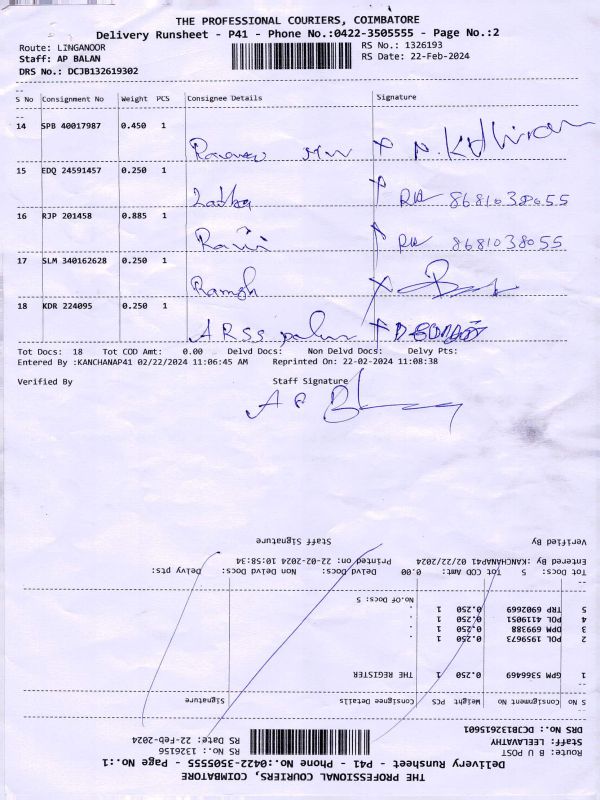 THE PROFESSIONAL COURIERS, COIMBATORE
Delivery Runsheet - P41 - Phone No.:0422-3505555 - Page No.:2
Route: LINGANOOR RS No.: 1326193
Staff: AP BALAN RS Date: 22-Feb-2024
DRS No.: DCJB132619302
S No Consignment No Weight PCS Consignee Details Signature
14 SPB 40017987 0.450 1
15 EDQ 24591457 0.250 1 8681038055
16 RJP 201458 0.885 1 8681038055
17 SLM 340162628 0.250 1 Ramesh
18 KDR 224095 0.250 1
Tot Docs: 18 Tot COD Amt: 0.00 Delvd Docs: Non Delvd Docs: Delvy Pts:
Entered By :KANCHANAP41 02/22/2024 11:06:45 AM Reprinted On: 22-02-2024 11:08:38
Verified By Staff Signature
THE PROFESSIONAL COURIERS, COIMBATORE
Delivery Runsheet - P41 - Phone No.:0422-3505555 - Page No.:1
Route: B U POST RS No.: 1326156
Staff: LEELAVATHY RS Date: 22-Feb-2024
DRS No.: DCJB132615601
S No Consignment No Weight PCS Consignee Details Signature
1 GPM 5366469 0.250 1 THE REGISTER
2 POL 1959673 0.250 1 .
3 DPM 699388 0.250 1 .
4 POL 4119051 0.250 1 .
5 TRP 6902669 0.250 1 .
No.Of Docs: 5
Tot Docs: 5 Tot COD Amt: 0.00 Delvd Docs: Non Delvd Docs: Delvy pts:
Entered By :KANCHANAP41 02/22/2024 Printed on: 22-02-2024 10:58:34
Verified By Staff Signature